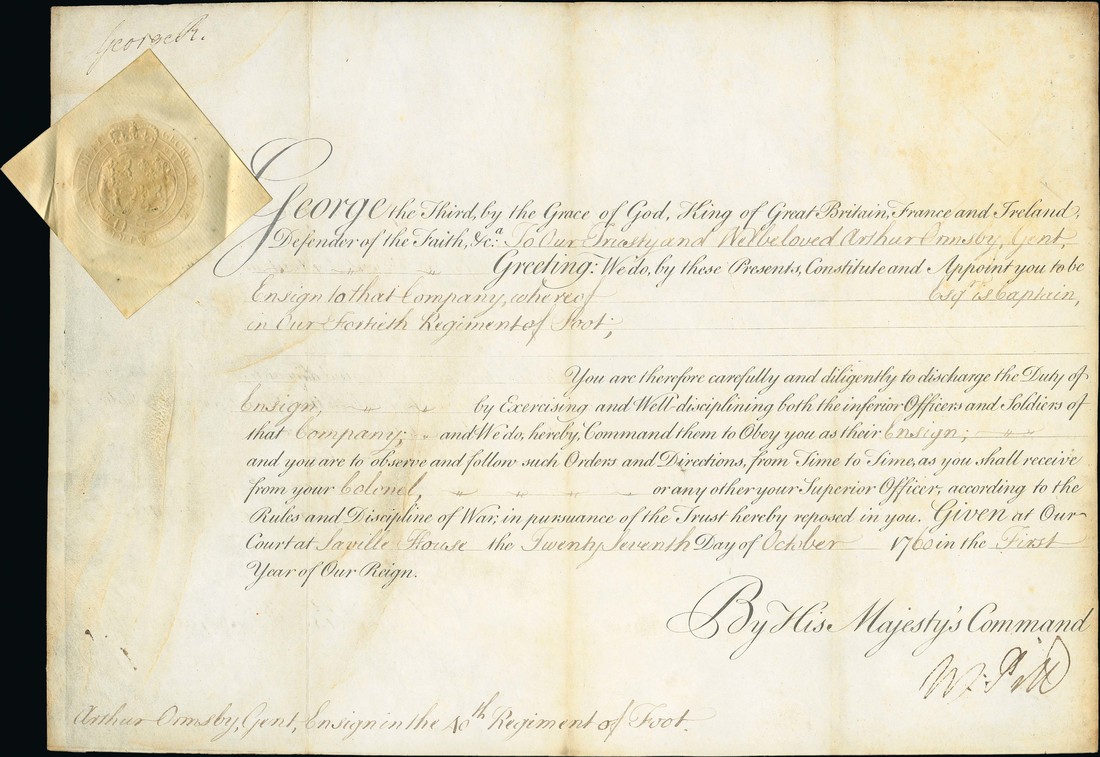 George R.
George the Third, by the Grace of God, King of Great Britain, France and Ireland,
Defender of the Faith, &c.a To Our Trusty and Welbeloved Arthur Ormsby, Gent,
Greeting: We do, by these Presents, Constitute and Appoint you to be
Ensign to that Company, whereof Esqr. is Captain,
in Our Fortieth Regiment of Foot;
You are therefore carefully and diligently to discharge the Duty of
Ensign, by Exercising and Well-disciplining both the inferior Officers and Soldiers of
that Company; and We do, hereby, Command them to Obey you as their Ensign;
and you are to observe and follow such Orders and Directions, from Time to Time, as you shall receive
from your Colonel, or any other your Superior Officer, according to the
Rules and Discipline of War, in pursuance of the Trust hereby reposed in you. Given at Our
Court at Saville House the Twenty Seventh Day of October 1760 in the First
Year of Our Reign.
By His Majesty's Command
W: Pitt
Arthur Ormsby, Gent, Ensign in the 40th Regiment of Foot.